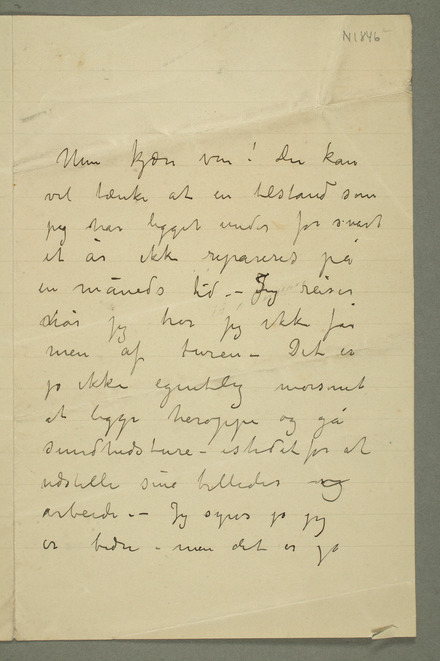 N 1846
Min kjære ven! Du kan
vel tænke at en tilstand som
jeg har ligget under for snart
et år ikke repareres på
en måneds tid. – Jeg reiser
når jeg tror jeg ikke får
men af turen – Det er
jo ikke egentlig morsomt
at ligge heroppe og gå
sundhedsture – istedetfor at
udstille sine billeder og
arbeide. – Jeg synes jo jeg
er bedre – men det er jo